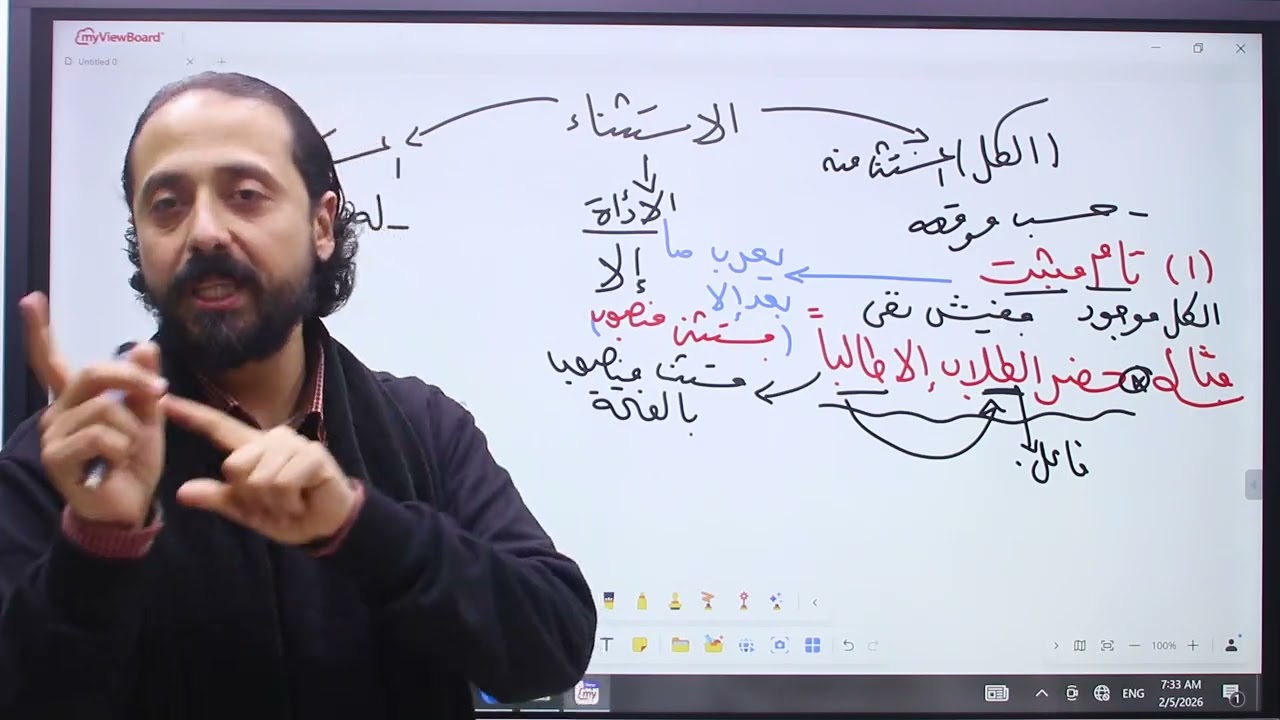 myViewBoard
Untitled 0
الاستثناء
(الكل) مستثنى منه
- حسب موقعه
الأداة
إلا
(١) تام مثبت
يعرب ما
بعد إلا
(مستثنى منصوب)
الكل موجود مفيش نفي
مثال حضر الطلاب إلا طالباً =
مستثنا منصوبا
بالفتحة
فاعل
- له
100%
ENG
7:33 AM
2/5/2026